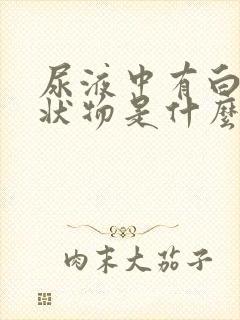 尿液中有白
状物是什麼
肉末大茄子